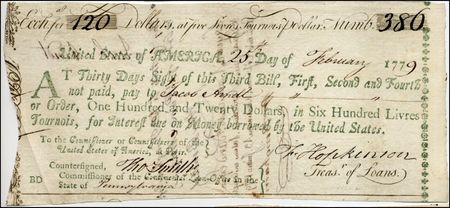 Exch. for 120 Dollars, at five Livres Tournois ⅌ Dollar, Numb. 380
United States of AMERICA, 25th Day of February 1779
AT Thirty Days Sight of this Third Bill, First, Second and Fourth
not paid, pay to Jacob Arndt
or Order, One Hundred and Twenty Dollars, in Six Hundred Livres
Tournois, for Interest due on Money borrowed by the United States.
To the Commissioner or Commissioners of the
United States of America, at Paris.
Countersigned, Tho Smith
Commissioner of the Continental Loan-Office in the
State of Pennsylvania
BD
F. Hopkinson
Treas. of Loans.